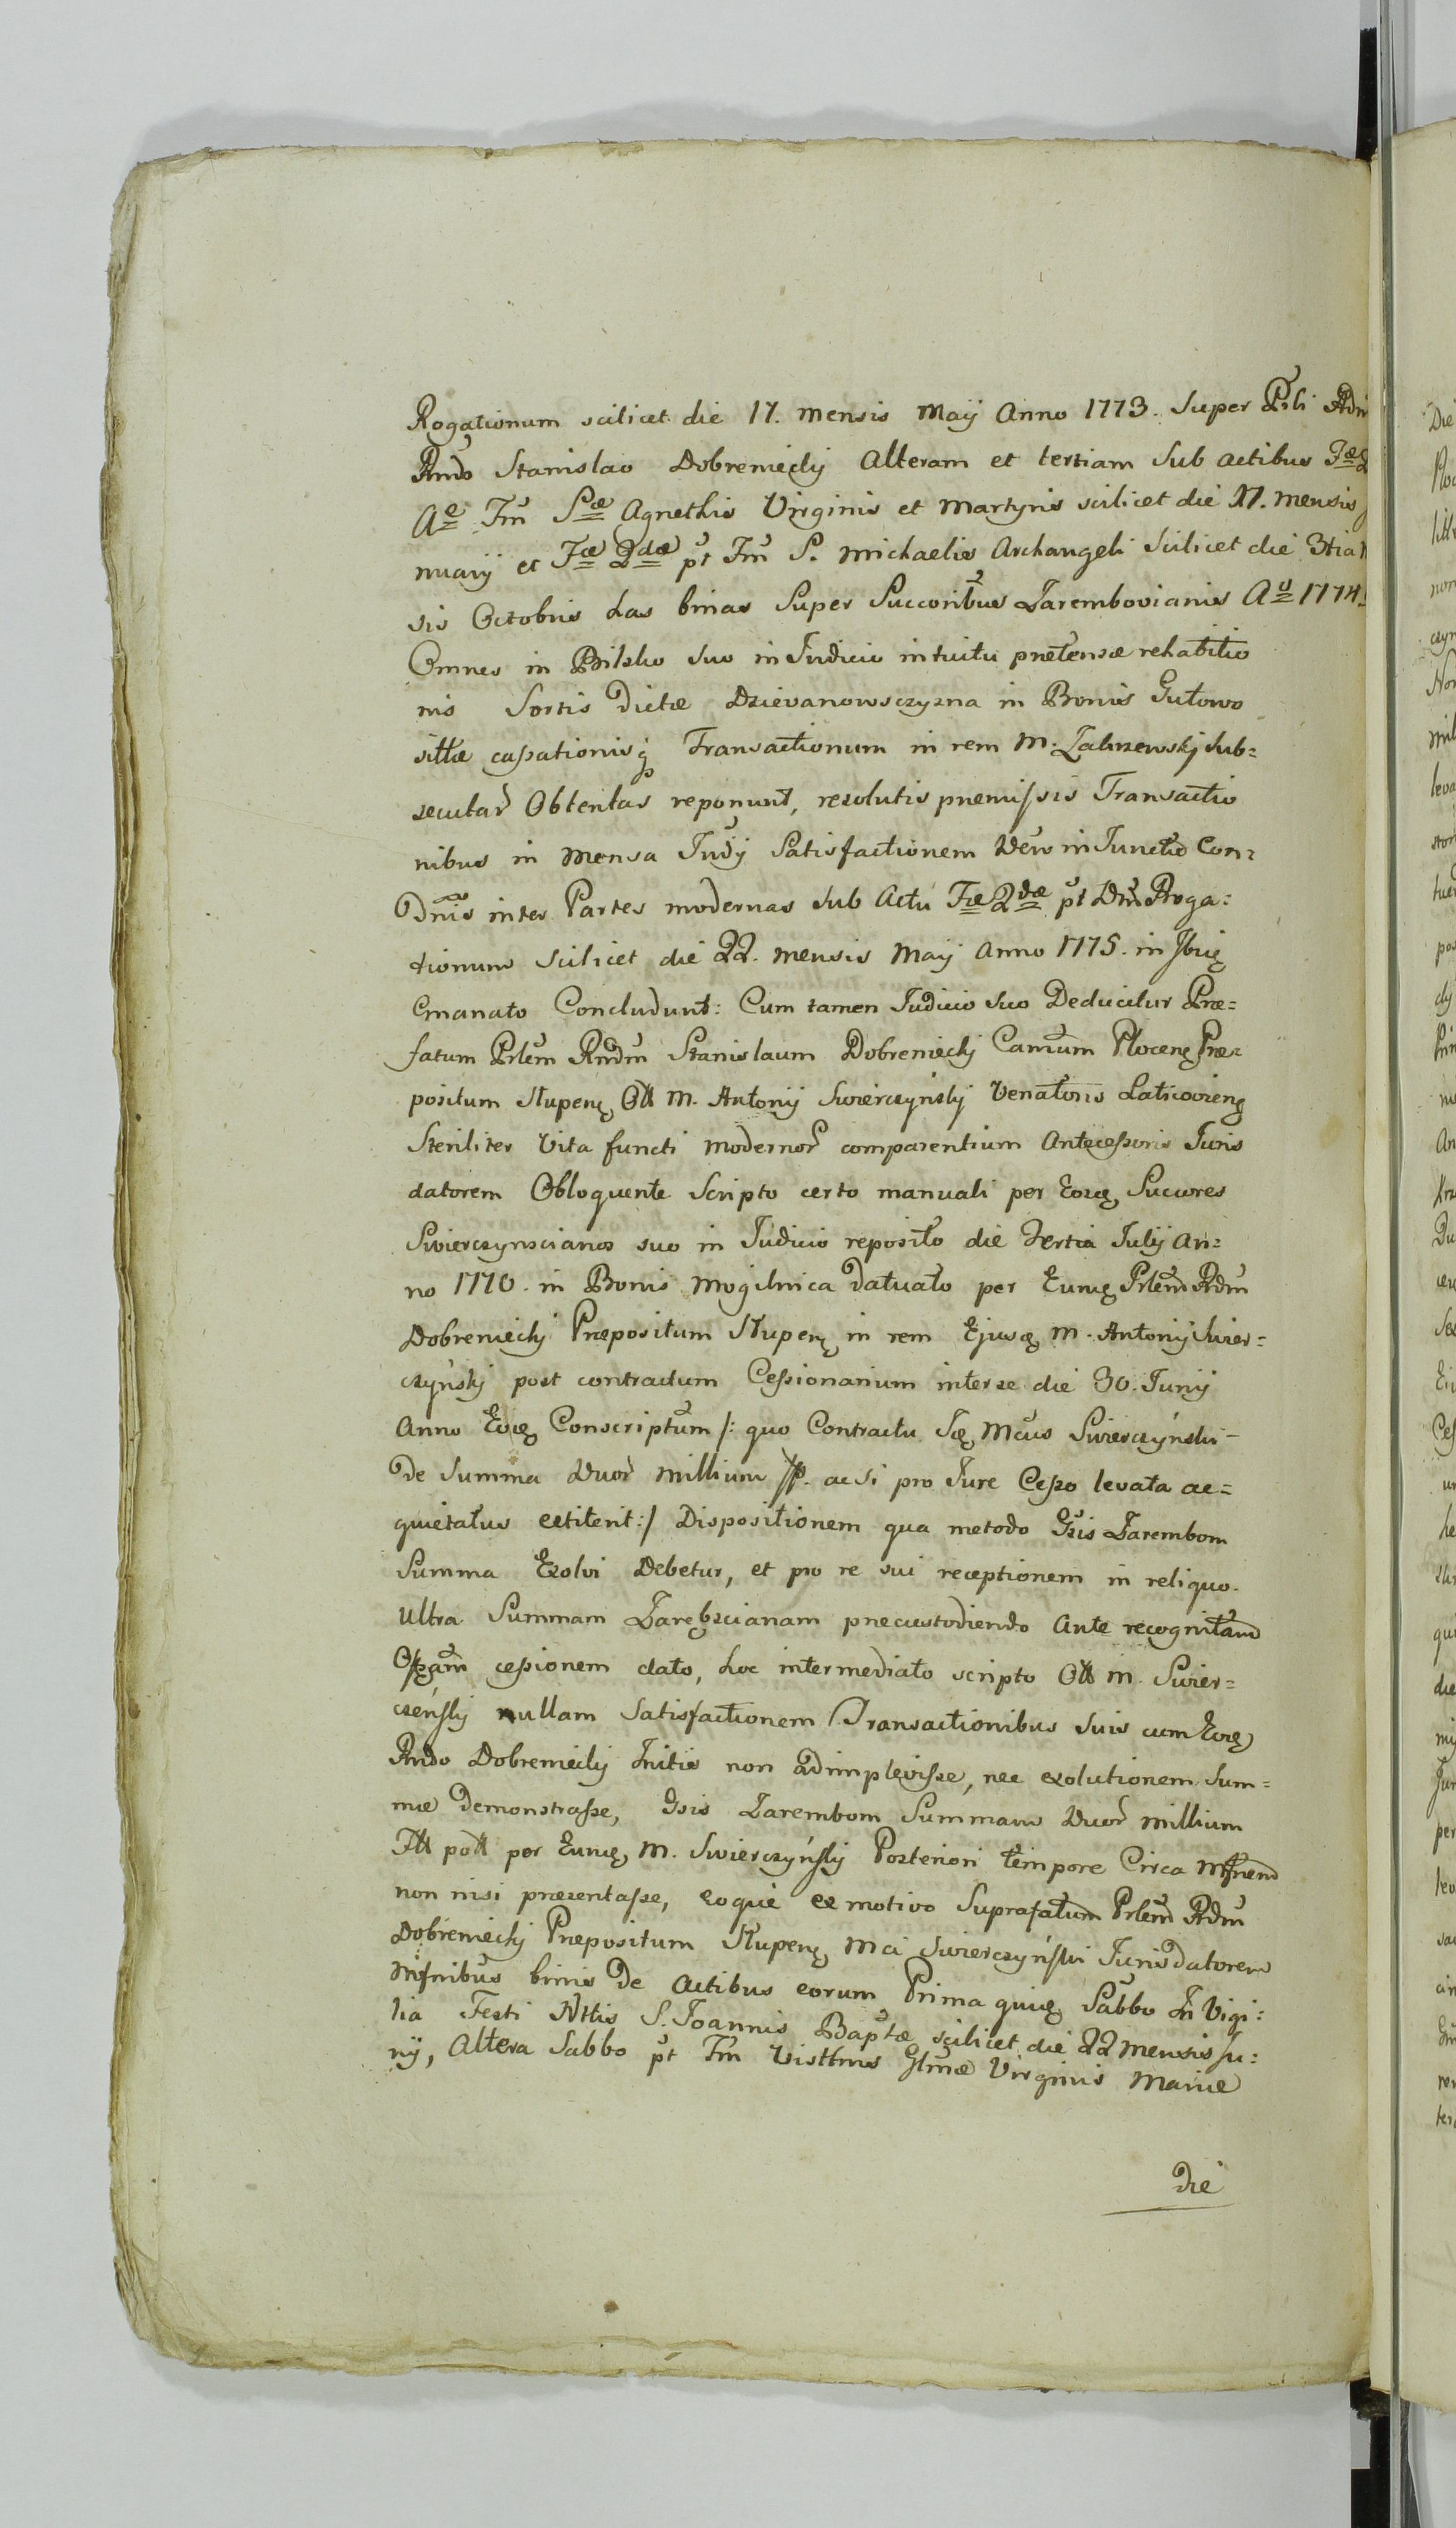 Rogationum scilicet die 17. mensis Maij Anno 1773. Super Prli Adm
Rndo Stanislao Dobremiecky Alteram et tertiam sub actibus Fæ
Ae Fm Sæ Agnethis Virginis et Martyris scilicet die 17. mensis
nuarij et Fæ 2dæ pt Fm S. Michaelis Archangeli scilicet die 3tia
sis Octobris has binas Super Succoribus Zarembovianis Au 1774.
Omnes in Bilsko suo in Judicio intuitu prætensæ rehabitio
nis Sortis dictæ Dzievanowsczyzna in Bonis Gutowo
sittæ cassationisq Transactionum in rem M. Zaluzewskj sub=
secutar Obtentas reponunt, resolutis præmissis Transactio
nibus in Mensa Judij Satisfactionem Vero in Juncto Con=
Dnis inter Partes modernas sub Actu Fæ 2dæ pt Dm Roga=
tionum scilicet die 22. mensis Maij Anno 1775. in Ibiq
Emanato Concludunt: Cum tamen Judicio suo Deducitur Præ=
fatum Prlem Rndm Stanislaum Dobrenieckj Canum Ploceng Præ=
positum Stupeng Oll M. Antonij Swierczynskj Venatoris Laticovieng
Steriliter Vita functi modernor comparentium Antecessoris Juris
datorem Obloquente Scripto certo manuali per Eosq Succores
Swierczynscianos suo in Judicio reposito die Tertia Julij An=
no 1770. in Bonis Mogilnica datuato per Eunq Prlem Rdm
Dobrenieckj Præpositum Stupeng in rem Ejusq M. Antonij Swier=
czynskj post contractum Cessionarium inter se die 30. Junij
Anno Eoq Conscriptum /: quo Contractu Iq Mcus Swierczynski
De Summa Duor millium fp. ac si pro Jure Cesso levata ac=
quietatus extiterit:/ Dispositionem qua metodo Gsis Zarembom
Summa Exolvi Debetur, et pro re sui receptionem in reliquo
ultra Summam Zarębscianam præcustodiendo Ante recognitam
cessionem dato, hoc intermediato scripto Oll M. Swier=
czenskj nullam Satisfactionem Transactionibus suis cum Eoq
Rndo Dobrenieckj Initis non adimplevisse, nec exolutionem Sum=
mæ demonstrasse, Gsis Zarembom Summam Duor millium
Fll poll per Eunq M. Swierczynskj Posteriori tempore Circa
non nisi præsentasse, eoque ex motivo Suprafatum Prlem Rdm
Dobrenieckj Præpositum Stupeng Mci Swierczynski Juris datorem
binis De actibus eorum Prima quiq Sabbo In Vigi=
lia Festi Nttis S. Joannis Baptæ scilicet die 22 mensis Ju=
nij, Altera Sabbo pt Fm Visttnis Glmæ Virginis Mariæ
die